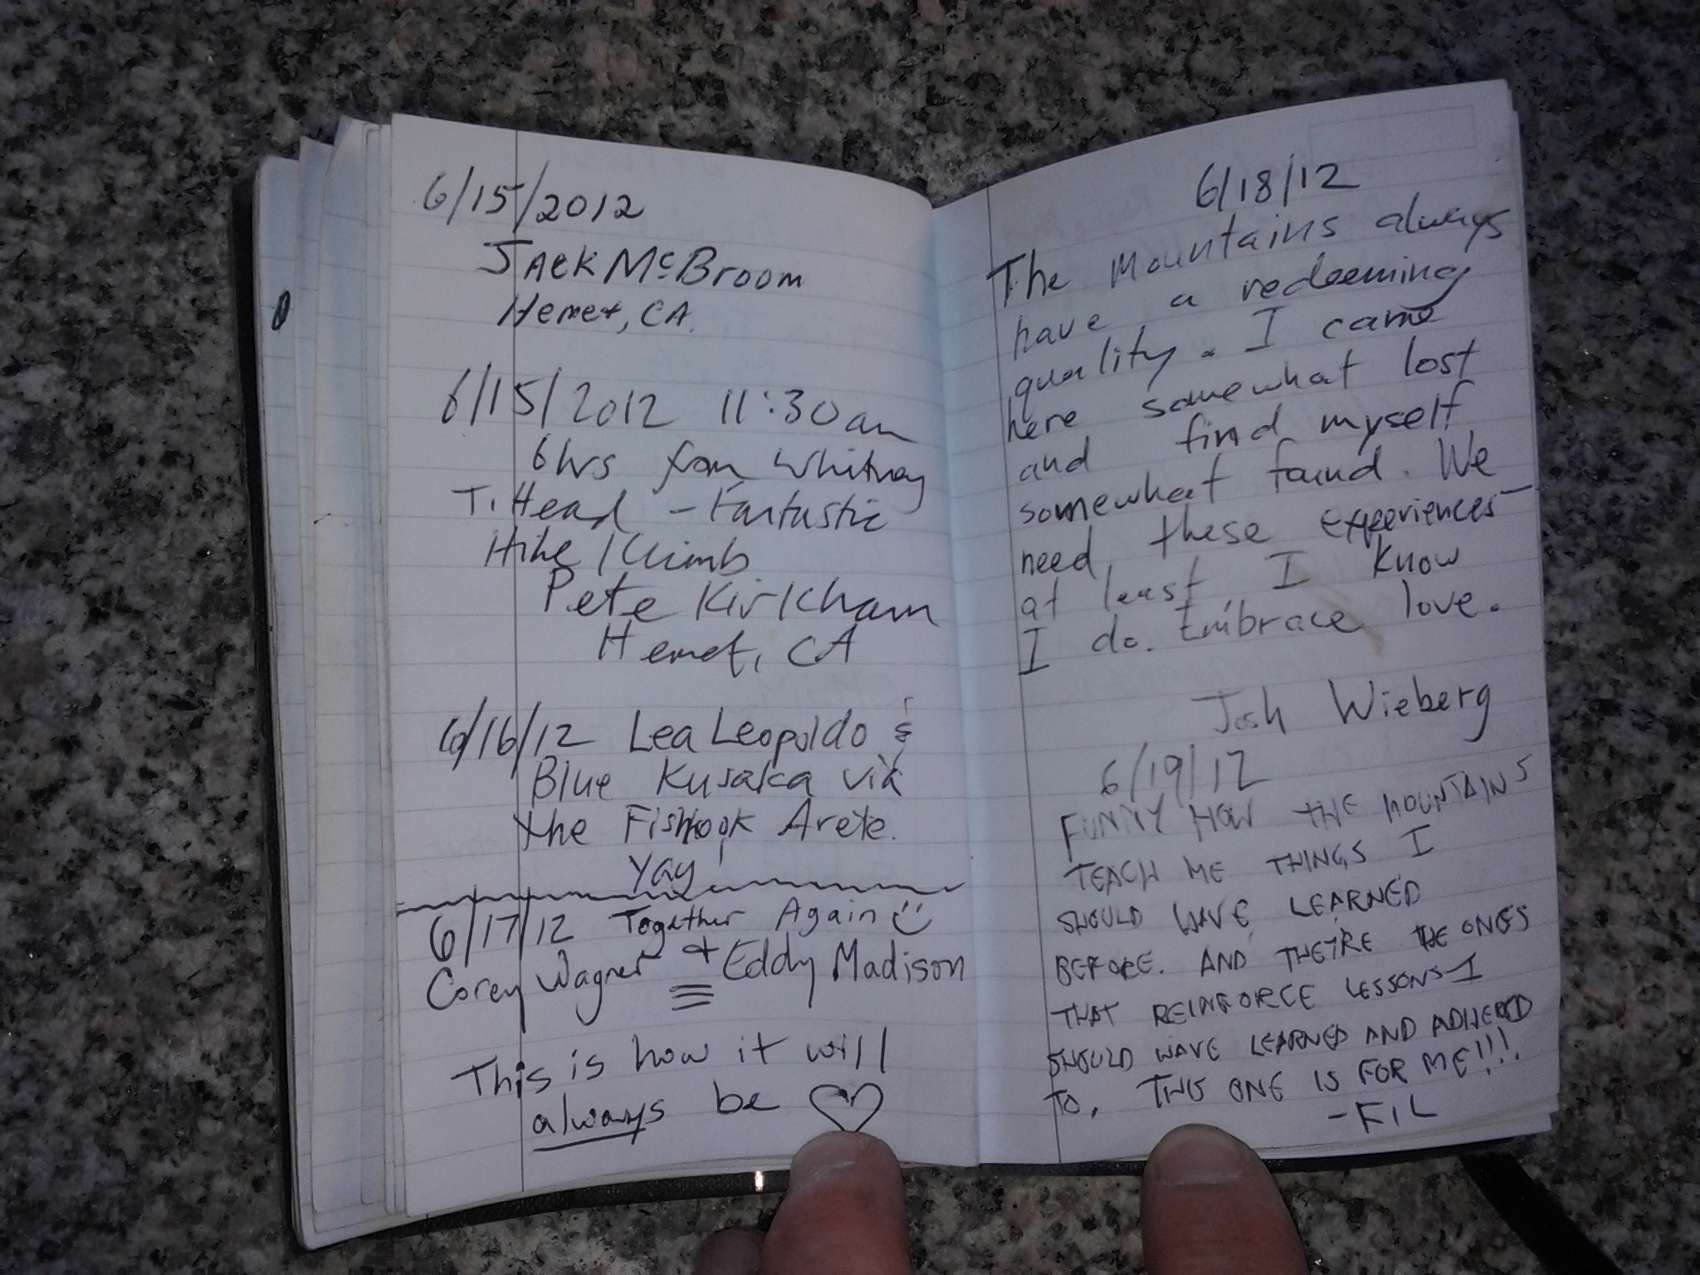 6/15/2012
Jack McBroom
Hemet, CA.
6/15/2012 11:30am
6hrs from Whitney
T. Head - Fantastic
Hike/Climb
Pete Kirkham
Hemet, CA
6/16/12 Lea Leopoldo &
Blue Kusaka via
the Fishhook Arete.
Yay!
6/17/12 Together Again
Corey Wagner + Eddy Madison
This is how it will
always be
6/18/12
The Mountains always
have a redeeming
quality. I came
here somewhat lost
and find myself
somewhat found. We
need these experiences-
at least I know
I do. Embrace love.
Josh Wieberg
6/19/12
FUNNY HOW THE MOUNTAINS
TEACH ME THINGS I
SHOULD HAVE LEARNED
BEFORE. AND THEY'RE THE ONES
THAT REINFORCE LESSONS I
SHOULD HAVE LEARNED AND ADHERED
TO. THIS ONE IS FOR ME!!!.
-FIL